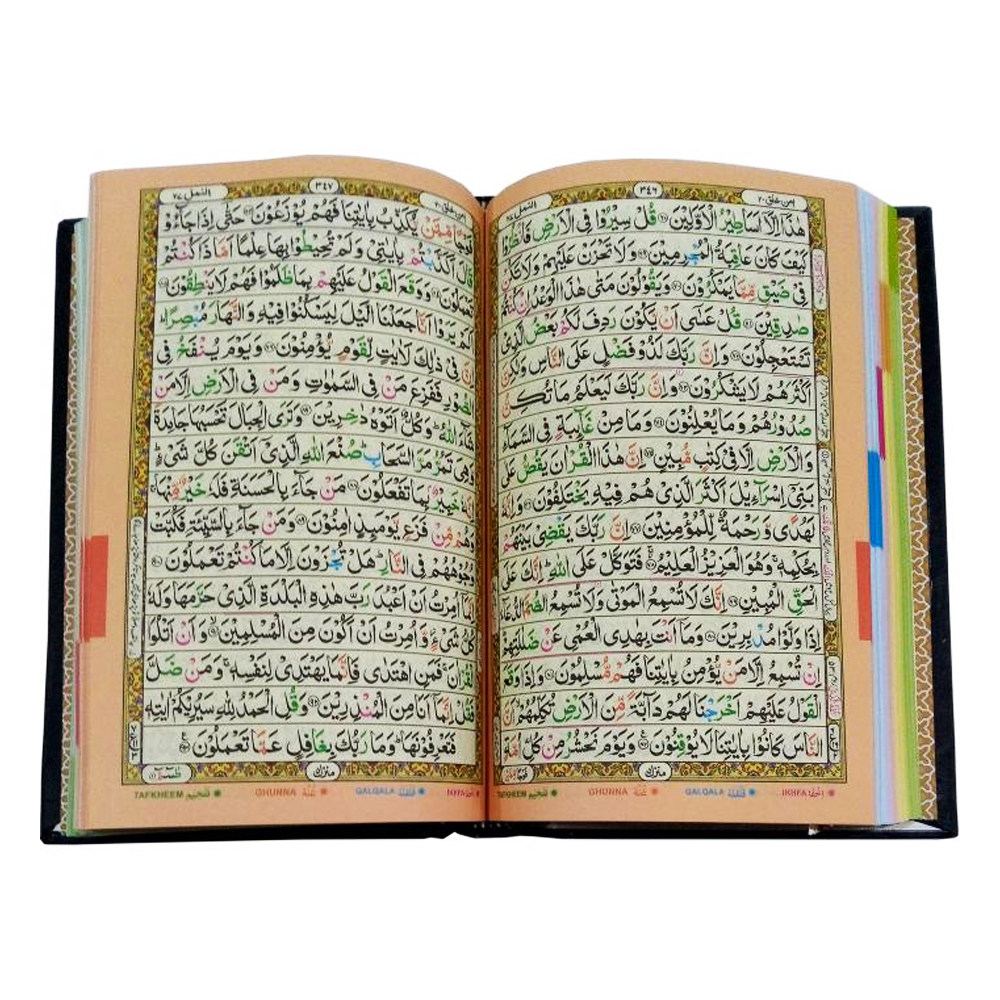 امن خلق ٢٠
٣٤٦
النمل ٢٧
هٰذَآ اِلَّآ اَسَاطِيْرُ الْاَوَّلِيْنَ ۝٦٨ قُلْ سِيْرُوْا فِى الْاَرْضِ فَانْظُرُوْا
كَيْفَ كَانَ عَاقِبَةُ الْمُجْرِمِيْنَ ۝٦٩ وَلَا تَحْزَنْ عَلَيْهِمْ وَلَا تَكُنْ
فِىْ ضَيْقٍ مِّمَّا يَمْكُرُوْنَ ۝٧٠ وَيَقُوْلُوْنَ مَتٰى هٰذَا الْوَعْدُ اِنْ كُنْتُمْ
صٰدِقِيْنَ ۝٧١ قُلْ عَسٰٓى اَنْ يَّكُوْنَ رَدِفَ لَكُمْ بَعْضُ الَّذِىْ
تَسْتَعْجِلُوْنَ ۝٧٢ وَاِنَّ رَبَّكَ لَذُوْ فَضْلٍ عَلَى النَّاسِ وَلٰكِنَّ
اَكْثَرَهُمْ لَا يَشْكُرُوْنَ ۝٧٣ وَاِنَّ رَبَّكَ لَيَعْلَمُ مَا تُكِنُّ
صُدُوْرُهُمْ وَمَا يُعْلِنُوْنَ ۝٧٤ وَمَا مِنْ غَآئِبَةٍ فِى السَّمَآءِ
وَالْاَرْضِ اِلَّا فِىْ كِتٰبٍ مُّبِيْنٍ ۝٧٥ اِنَّ هٰذَا الْقُرْاٰنَ يَقُصُّ عَلٰى
بَنِىْٓ اِسْرَآءِيْلَ اَكْثَرَ الَّذِىْ هُمْ فِيْهِ يَخْتَلِفُوْنَ ۝٧٦ وَاِنَّهٗ
لَهُدًى وَّرَحْمَةٌ لِّلْمُؤْمِنِيْنَ ۝٧٧ اِنَّ رَبَّكَ يَقْضِىْ بَيْنَهُمْ
بِحُكْمِهٖ ۚ وَهُوَ الْعَزِيْزُ الْعَلِيْمُ ۝٧٨ فَتَوَكَّلْ عَلَى اللّٰهِ ۗ اِنَّكَ عَلَى
الْحَقِّ الْمُبِيْنِ ۝٧٩ اِنَّكَ لَا تُسْمِعُ الْمَوْتٰى وَلَا تُسْمِعُ الصُّمَّ الدُّعَآءَ
اِذَا وَلَّوْا مُدْبِرِيْنَ ۝٨٠ وَمَآ اَنْتَ بِهٰدِى الْعُمْىِ عَنْ ضَلٰلَتِهِمْ ؕ
اِنْ تُسْمِعُ اِلَّا مَنْ يُّؤْمِنُ بِاٰيٰتِنَا فَهُمْ مُّسْلِمُوْنَ ۝٨١ وَاِذَا وَقَعَ
الْقَوْلُ عَلَيْهِمْ اَخْرَجْنَا لَهُمْ دَآبَّةً مِّنَ الْاَرْضِ تُكَلِّمُهُمْ ۙ اَنَّ
النَّاسَ كَانُوْا بِاٰيٰتِنَا لَا يُوْقِنُوْنَ ۝٨٢ وَيَوْمَ نَحْشُرُ مِنْ كُلِّ اُمَّةٍ
منزل ٥
IKHFA اخفا QALQALA قلقلة GHUNNA غنة TAFKHEEM تفخيم
امن خلق ٢٠
٣٤٧
النمل ٢٧
فَوْجًا مِّمَّنْ يُّكَذِّبُ بِاٰيٰتِنَا فَهُمْ يُوْزَعُوْنَ ۝٨٣ حَتّٰٓى اِذَا جَآءُوْ
قَالَ اَكَذَّبْتُمْ بِاٰيٰتِىْ وَلَمْ تُحِيْطُوْا بِهَا عِلْمًا اَمَّاذَا كُنْتُمْ
تَعْمَلُوْنَ ۝٨٤ وَوَقَعَ الْقَوْلُ عَلَيْهِمْ بِمَا ظَلَمُوْا فَهُمْ لَا يَنْطِقُوْنَ ۝٨٥
اَلَمْ يَرَوْا اَنَّا جَعَلْنَا الَّيْلَ لِيَسْكُنُوْا فِيْهِ وَالنَّهَارَ مُبْصِرًا ؕ
اِنَّ فِىْ ذٰلِكَ لَاٰيٰتٍ لِّقَوْمٍ يُّؤْمِنُوْنَ ۝٨٦ وَيَوْمَ يُنْفَخُ فِى
الصُّوْرِ فَفَزِعَ مَنْ فِى السَّمٰوٰتِ وَمَنْ فِى الْاَرْضِ اِلَّا مَنْ
شَآءَ اللّٰهُ ؕ وَكُلٌّ اَتَوْهُ دٰخِرِيْنَ ۝٨٧ وَتَرَى الْجِبَالَ تَحْسَبُهَا جَامِدَةً
وَّهِىَ تَمُرُّ مَرَّ السَّحَابِ ؕ صُنْعَ اللّٰهِ الَّذِىْٓ اَتْقَنَ كُلَّ شَىْءٍ ؕ
اِنَّهٗ خَبِيْرٌۢ بِمَا تَفْعَلُوْنَ ۝٨٨ مَنْ جَآءَ بِالْحَسَنَةِ فَلَهٗ خَيْرٌ مِّنْهَا ۚ
وَهُمْ مِّنْ فَزَعٍ يَّوْمَئِذٍ اٰمِنُوْنَ ۝٨٩ وَمَنْ جَآءَ بِالسَّيِّئَةِ فَكُبَّتْ
وُجُوْهُهُمْ فِى النَّارِ ؕ هَلْ تُجْزَوْنَ اِلَّا مَا كُنْتُمْ تَعْمَلُوْنَ ۝٩٠
اِنَّمَآ اُمِرْتُ اَنْ اَعْبُدَ رَبَّ هٰذِهِ الْبَلْدَةِ الَّذِىْ حَرَّمَهَا وَلَهٗ
كُلُّ شَىْءٍ ۖ وَّاُمِرْتُ اَنْ اَكُوْنَ مِنَ الْمُسْلِمِيْنَ ۝٩١ وَاَنْ اَتْلُوَا
الْقُرْاٰنَ ۚ فَمَنِ اهْتَدٰى فَاِنَّمَا يَهْتَدِىْ لِنَفْسِهٖ ۚ وَمَنْ ضَلَّ
فَقُلْ اِنَّمَآ اَنَا مِنَ الْمُنْذِرِيْنَ ۝٩٢ وَقُلِ الْحَمْدُ لِلّٰهِ سَيُرِيْكُمْ اٰيٰتِهٖ
فَتَعْرِفُوْنَهَا ؕ وَمَا رَبُّكَ بِغَافِلٍ عَمَّا تَعْمَلُوْنَ ۝٩٣
منزل ٥
طٰسٓمّٓ
IKHFA اخفا QALQALA قلقلة GHUNNA غنة TAFKHEEM تفخيم